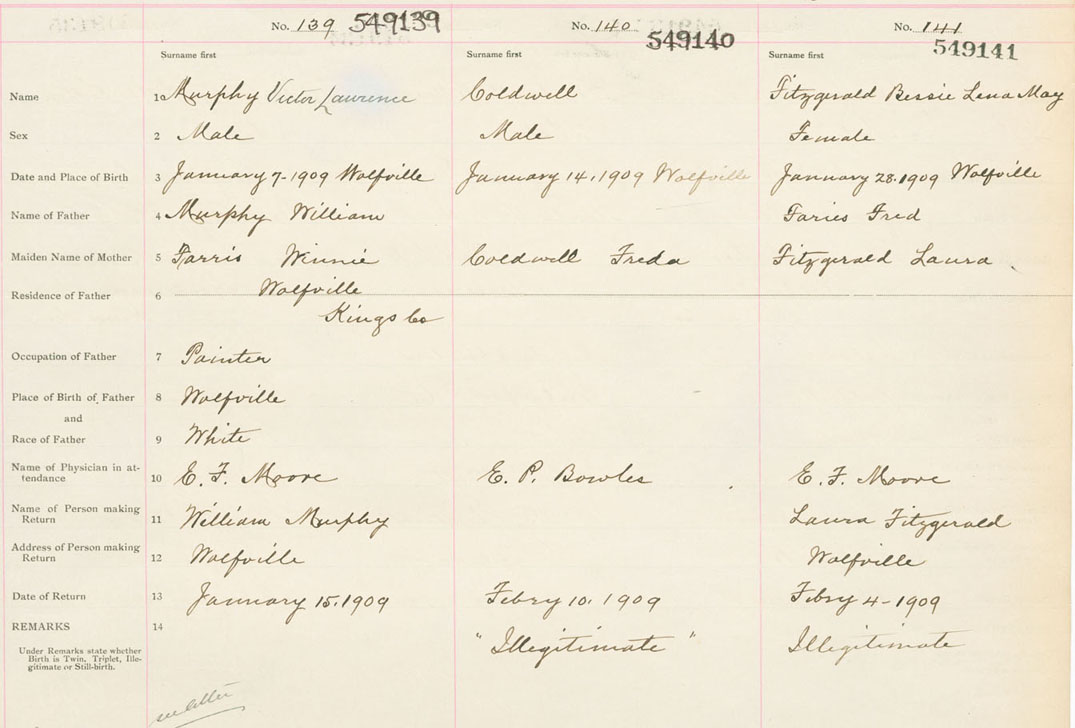 No. 139 549139 No. 140 549140 No. 141 549141
Surname first Surname first Surname first
Name 1a Murphy Victor Lawrence Coldwell Fitzgerald Bessie Lena May
Sex 2 Male Male Female
Date and Place of Birth 3 January 7-1909 Wolfville January 14, 1909 Wolfville January 28, 1909 Wolfville
Name of Father 4 Murphy William Faries Fred
Maiden Name of Mother 5 Farris Winnie Coldwell Freda Fitzgerald Laura
Residence of Father 6 Wolfville
Kings Co
Occupation of Father 7 Painter
Place of Birth of Father 8 Wolfville
and
Race of Father 9 White
Name of Physician in at-
tendance 10 E. F. Moore E. P. Bowles E. F. Moore
Name of Person making
Return 11 William Murphy Laura Fitzgerald
Address of Person making
Return 12 Wolfville Wolfville
Date of Return 13 January 15, 1909 Febry 10, 1909 Febry 4-1909
REMARKS 14
"Illegitimate" Illegitimate
Under Remarks state whether
Birth is Twin, Triplet, Ille-
gitimate or Still-birth.
see letter